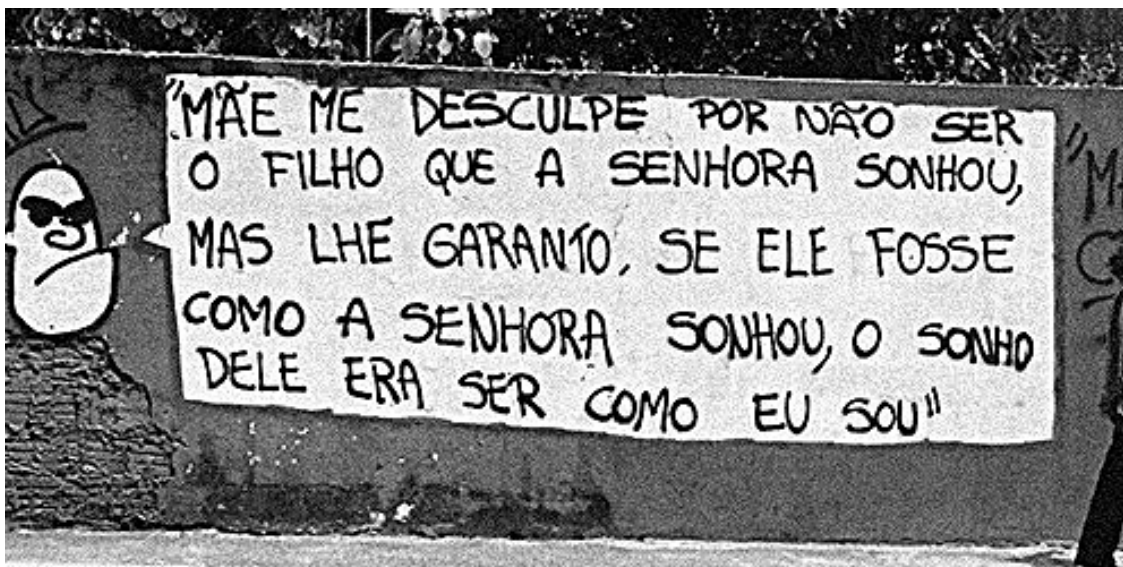 "MÃE ME DESCULPE POR NÃO SER
O FILHO QUE A SENHORA SONHOU,
MAS LHE GARANTO, SE ELE FOSSE
COMO A SENHORA SONHOU, O SONHO
DELE ERA SER COMO EU SOU"